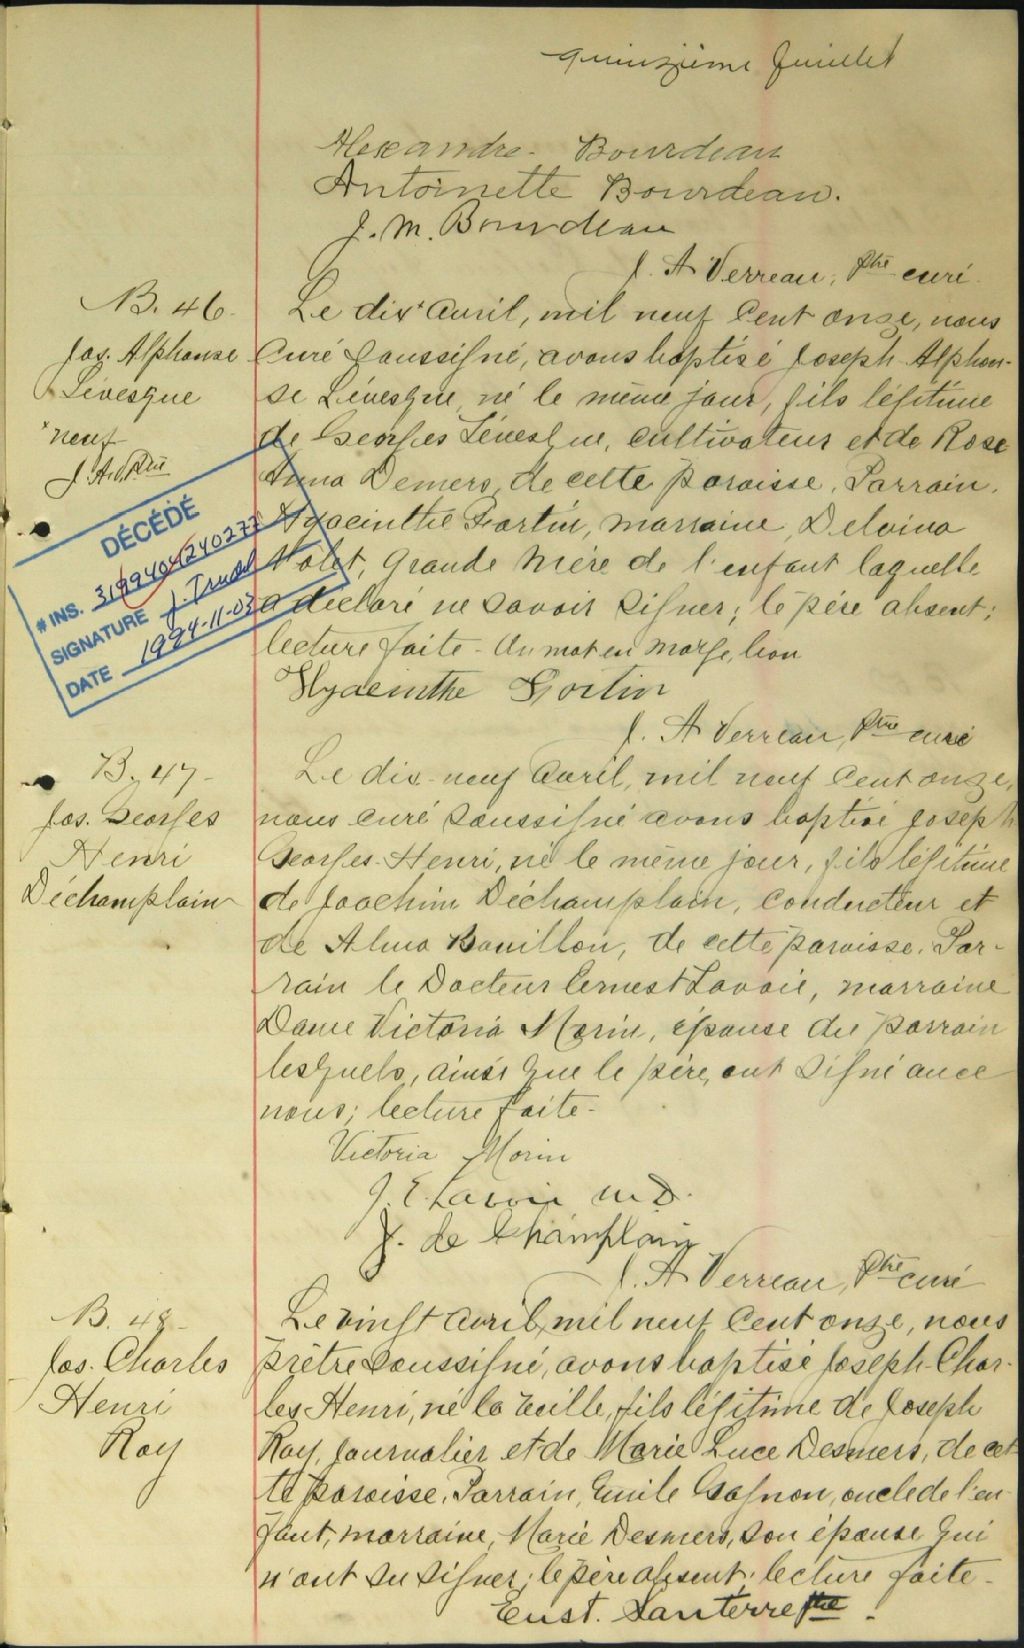 quinzième feuillet
Alexandre Bourdeau
Antoinette Bourdeau.
J. M. Bourdeau
J. A Verreau, Ptre curé
B. 46.
Jos. Alphonse
Lévesque
x neuf
J.A.V. Ptre
Le dix x avril, mil neuf cent onze, nous
curé soussigné, avons baptisé Joseph-Alphon-
se Lévesque, né le même jour, fils légitime
de Georges Lévesque, cultivateur et de Rose
Anna Demers, de cette paroisse. Parrain,
Hyacinthe Fortin, marraine, Delvina
Volet, grande mère de l'enfant laquelle
a déclaré ne savoir signer; le père absent;
lecture faite - Un mot en marge, bon
Hyacinthe Fortin
J. A Verreau, Ptre curé
DÉCÉDÉ
# INS. 3199404240277
SIGNATURE J. Trudel
DATE 1994-11-03
B. 47-
Jos. Georges
Henri
Déchamplain
Le dix-neuf avril, mil neuf cent onze,
nous curé soussigné avons baptisé Joseph
Georges-Henri, né le même jour, fils légitime
de Joachim Déchamplain, conducteur et
de Alma Bouillon, de cette paroisse. Par-
rain le Docteur Ernest Lavoie, marraine
Dame Victoria Morin, épouse du parrain
lesquels, ainsi que le père, ont signé avec
nous; lecture faite-
Victoria Morin
J. E. Lavoie M.D.
J. de Champlain
J. A Verreau, Ptre curé
B. 48-
Jos. Charles
Henri
Roy
Le vingt avril, mil neuf cent onze, nous
prêtre soussigné, avons baptisé Joseph-Char-
les Henri, né la veille, fils légitime de Joseph
Roy, journalier et de Marie Luce Desmers, de cet-
te paroisse. Parrain, Emile Gagnon, oncle de l'en
fant, marraine, Marie Desmers, son épouse qui
n'ont su signer; le père absent; lecture faite-
Eust. Santerre ptre.